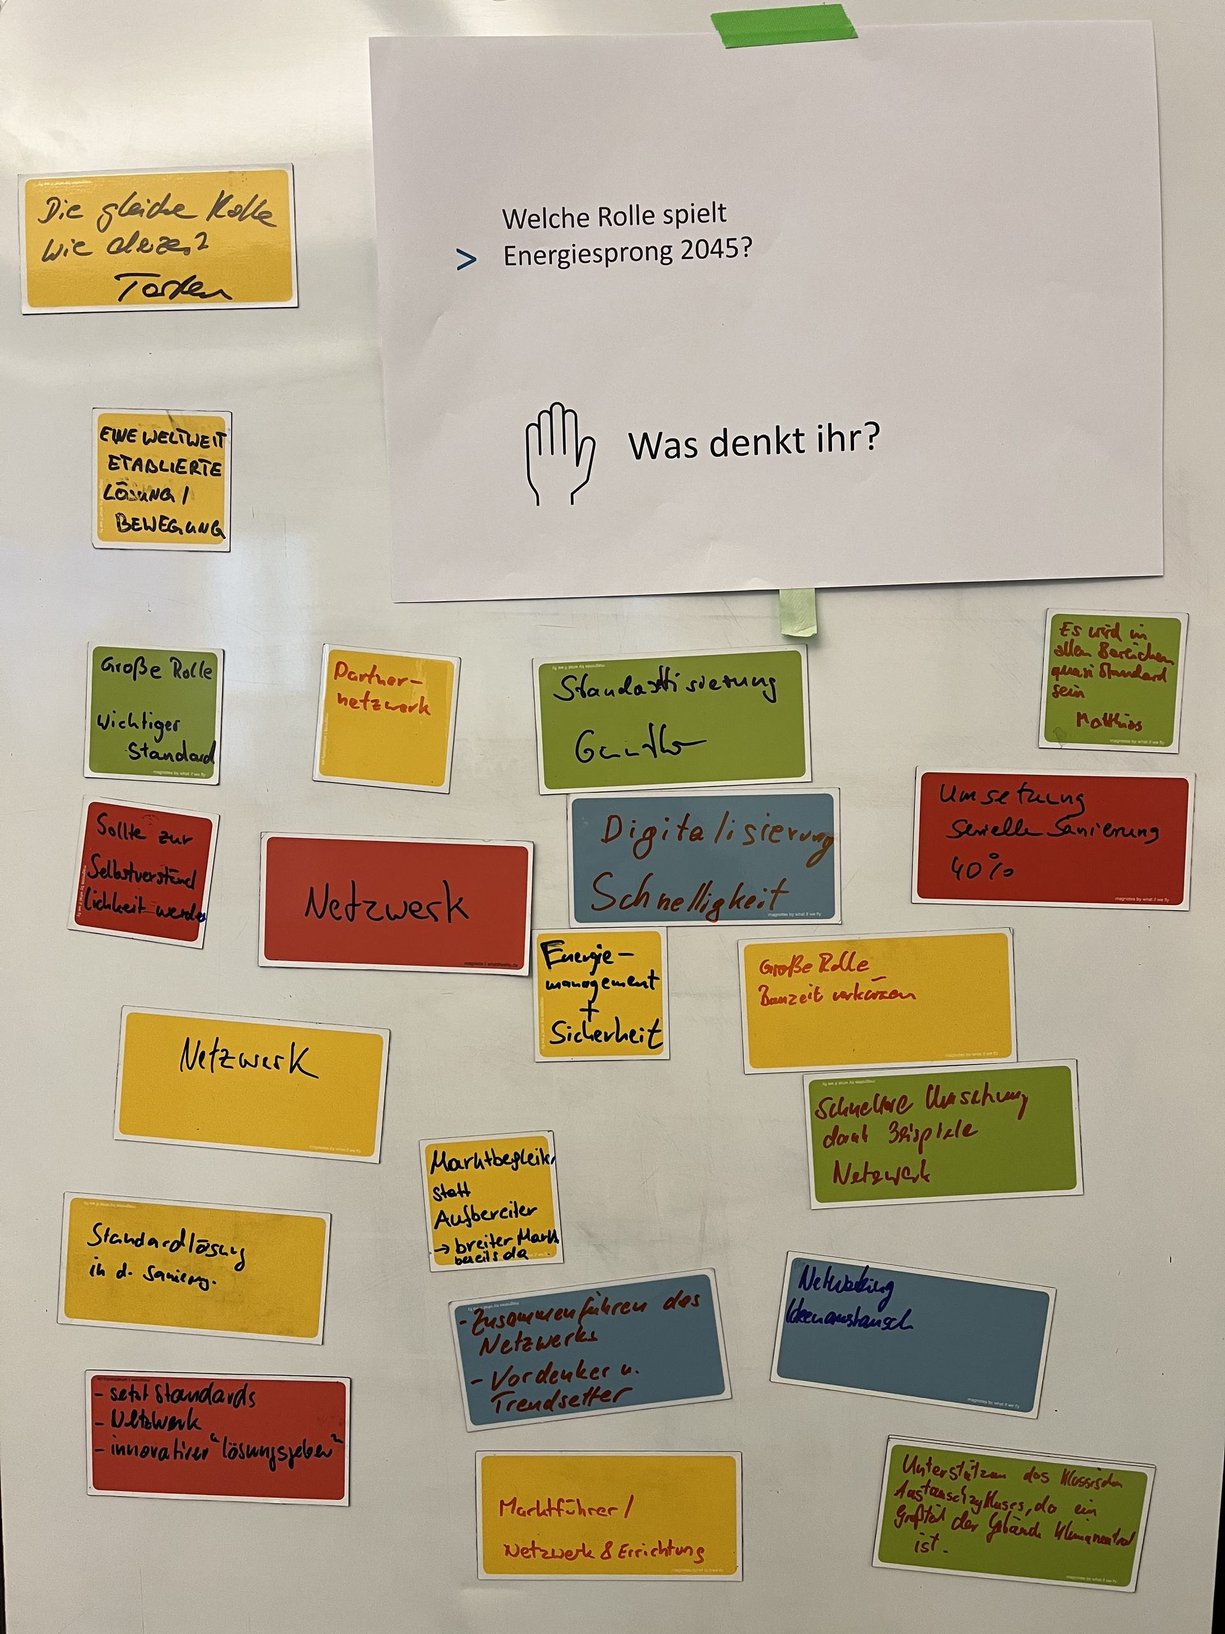 Welche Rolle spielt
> Energiesprong 2045?
Was denkt ihr?
Die gleiche Rolle
wie
EINE WELTWEIT
ETABLIERTE
LÖSUNG /
BEWEGUNG
Große Rolle
wichtiger
Standard
Partner-
netzwerk
Standardisierung
Es wird in
allen Bereichen
quasi Standard
sein
Matthias
Sollte zur
Selbstverständ
lichkeit werden
Netzwerk
Digitalisierung
Schnelligkeit
Umsetzung
Serielle Sanierung
40%
Energie-
management
+
Sicherheit
Große Rolle
Bauzeit verkürzen
Netzwerk
Schnellere Umsetzung
dank Beispiele
Netzwerk
Marktbegleiter
statt
Aufbereiter
→ breiter Markt
bereits da
Standardlösung
in d. Sanierg.
- Zusammenführen des
Netzwerks
- Vordenker u.
Trendsetter
Networking
Ideenaustausch
- setzt Standards
- Netzwerk
- innovativer "Lösungsgeber"
Marktführer /
Netzwerk & Errichtung
Unterstützen des klassischen
Austauschzykluses, da ein
Großteil der Gebäude klimaneutral
ist.